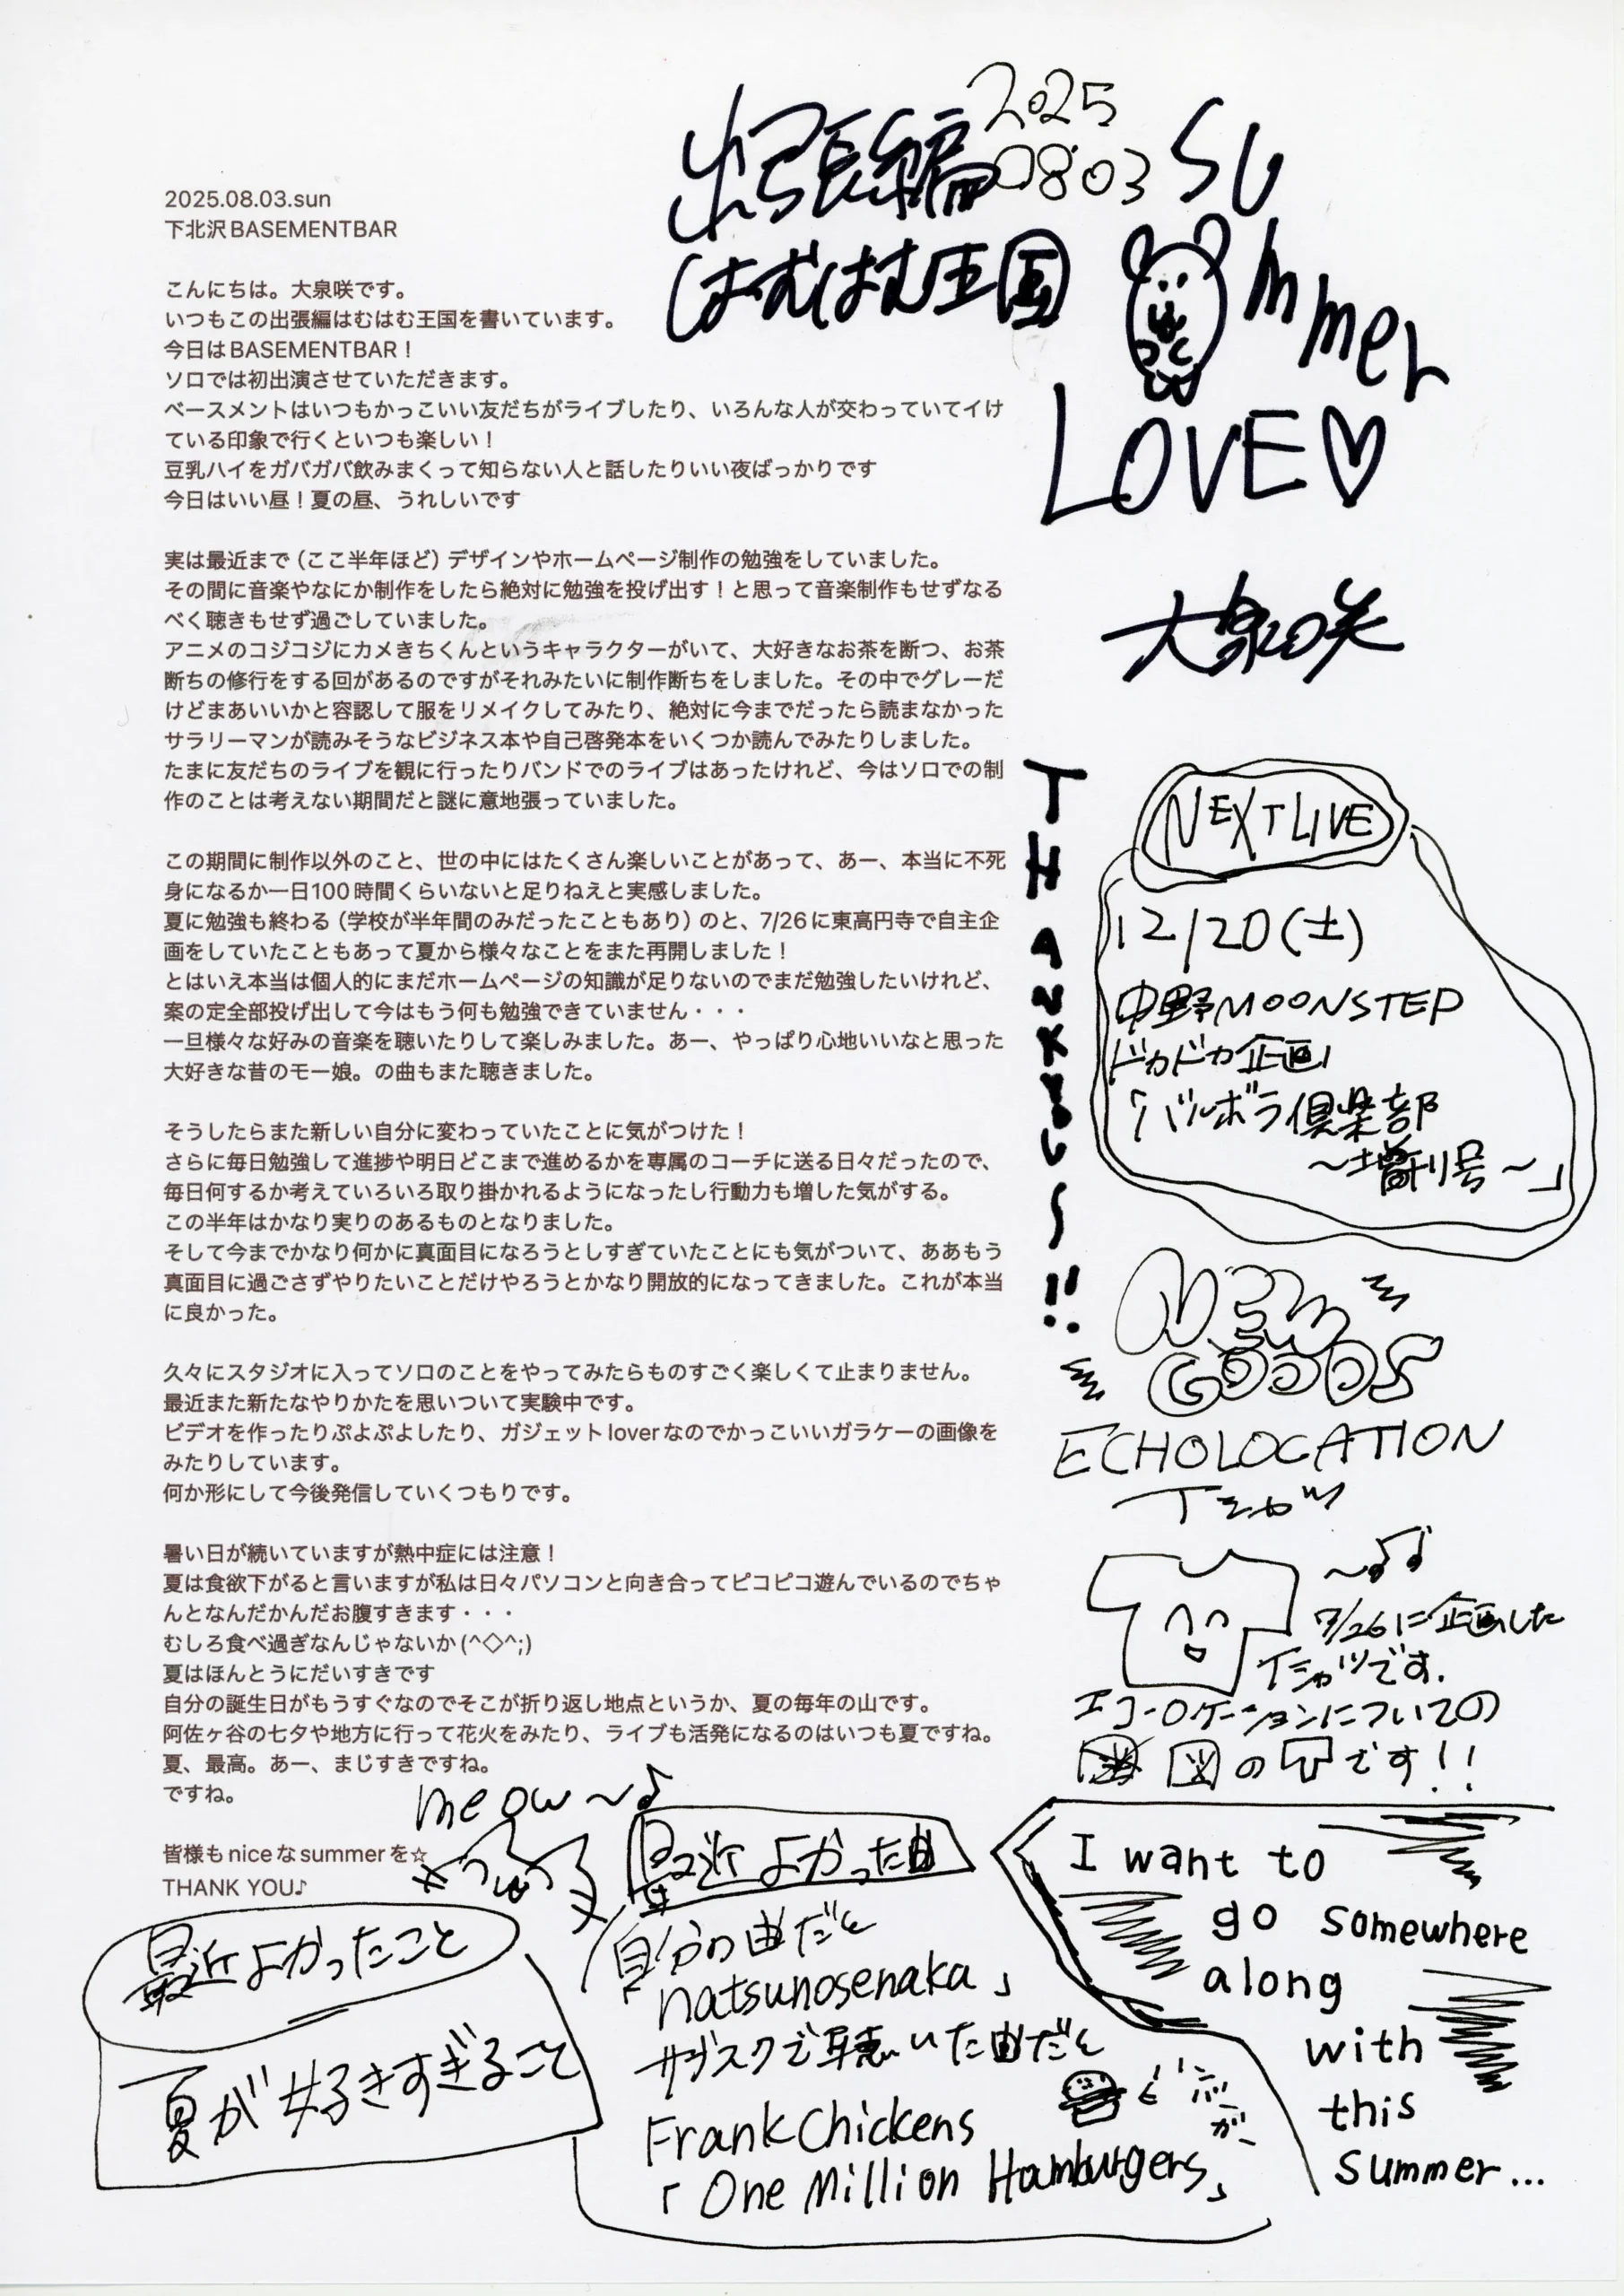 出張編
2025
0803
はむはむ王国
SUmmer
LOVE♡
大泉咲
2025.08.03.sun
下北沢BASEMENTBAR
こんにちは。大泉咲です。
いつもこの出張編はむはむ王国を書いています。
今日はBASEMENTBAR！
ソロでは初出演させていただきます。
ベースメントはいつもかっこいい友だちがライブしたり、いろんな人が交わっていてイけ
ている印象で行くといつも楽しい！
豆乳ハイをガバガバ飲みまくって知らない人と話したりいい夜ばっかりです
今日はいい昼！夏の昼、うれしいです
実は最近まで（ここ半年ほど）デザインやホームページ制作の勉強をしていました。
その間に音楽やなにか制作をしたら絶対に勉強を投げ出す！と思って音楽制作もせずなる
べく聴きもせず過ごしていました。
アニメのコジコジにカメきちくんというキャラクターがいて、大好きなお茶を断つ、お茶
断ちの修行をする回があるのですがそれみたいに制作断ちをしました。その中でグレーだ
けどまあいいかと容認して服をリメイクしてみたり、絶対に今までだったら読まなかった
サラリーマンが読みそうなビジネス本や自己啓発本をいくつか読んでみたりしました。
たまに友だちのライブを観に行ったりバンドでのライブはあったけれど、今はソロでの制
作のことは考えない期間だと謎に意地張っていました。
この期間に制作以外のこと、世の中にはたくさん楽しいことがあって、あー、本当に不死
身になるか一日100時間くらいないと足りねえと実感しました。
夏に勉強も終わる（学校が半年間のみだったこともあり）のと、7/26に東高円寺で自主企
画をしていたこともあって夏から様々なことをまた再開しました！
とはいえ本当は個人的にまだホームページの知識が足りないのでまだ勉強したいけれど、
案の定全部投げ出して今はもう何も勉強できていません・・・
一旦様々な好みの音楽を聴いたりして楽しみました。あー、やっぱり心地いいなと思った
大好きな昔のモー娘。の曲もまた聴きました。
そうしたらまた新しい自分に変わっていたことに気がつけた！
さらに毎日勉強して進捗や明日どこまで進めるかを専属のコーチに送る日々だったので、
毎日何するか考えていろいろ取り掛かれるようになったし行動力も増した気がする。
この半年はかなり実りのあるものとなりました。
そして今までかなり何かに真面目になろうとしすぎていたことにも気がついて、ああもう
真面目に過ごさずやりたいことだけやろうとかなり開放的になってきました。これが本当
に良かった。
久々にスタジオに入ってソロのことをやってみたらものすごく楽しくて止まりません。
最近また新たなやりかたを思いついて実験中です。
ビデオを作ったりぷよぷよしたり、ガジェットloverなのでかっこいいガラケーの画像を
みたりしています。
何か形にして今後発信していくつもりです。
暑い日が続いていますが熱中症には注意！
夏は食欲下がると言いますが私は日々パソコンと向き合ってピコピコ遊んでいるのでちゃ
んとなんだかんだお腹すきます・・・
むしろ食べ過ぎなんじゃないか(^◇^;)
夏はほんとうにだいすきです
自分の誕生日がもうすぐなのでそこが折り返し地点というか、夏の毎年の山です。
阿佐ヶ谷の七夕や地方に行って花火をみたり、ライブも活発になるのはいつも夏ですね。
夏、最高。あー、まじすきですね。
ですね。
皆様もniceなsummerを☆
THANK YOU♪
THANKYOU〜!!
NEXT LIVE
12/20(土)
中野MOONSTEP
ドカドカ企画
「バルボラ倶楽部
〜増刊号〜」
NEW
GOODS
ECHOLOCATION
Tシャツ
〜♪♫
7/26に企画した
Tシャツです.
エコーロケーションについての
図のTです!!
meow〜♪
最近よかったこと
夏が好きすぎること
最近よかった曲
自分の曲だと
「natsunosenaka」
サブスクで聴いた曲だと
Frank Chickens
「One Million Hamburgers」
ハンバーガー
I want to
go somewhere
along
with
this
summer...